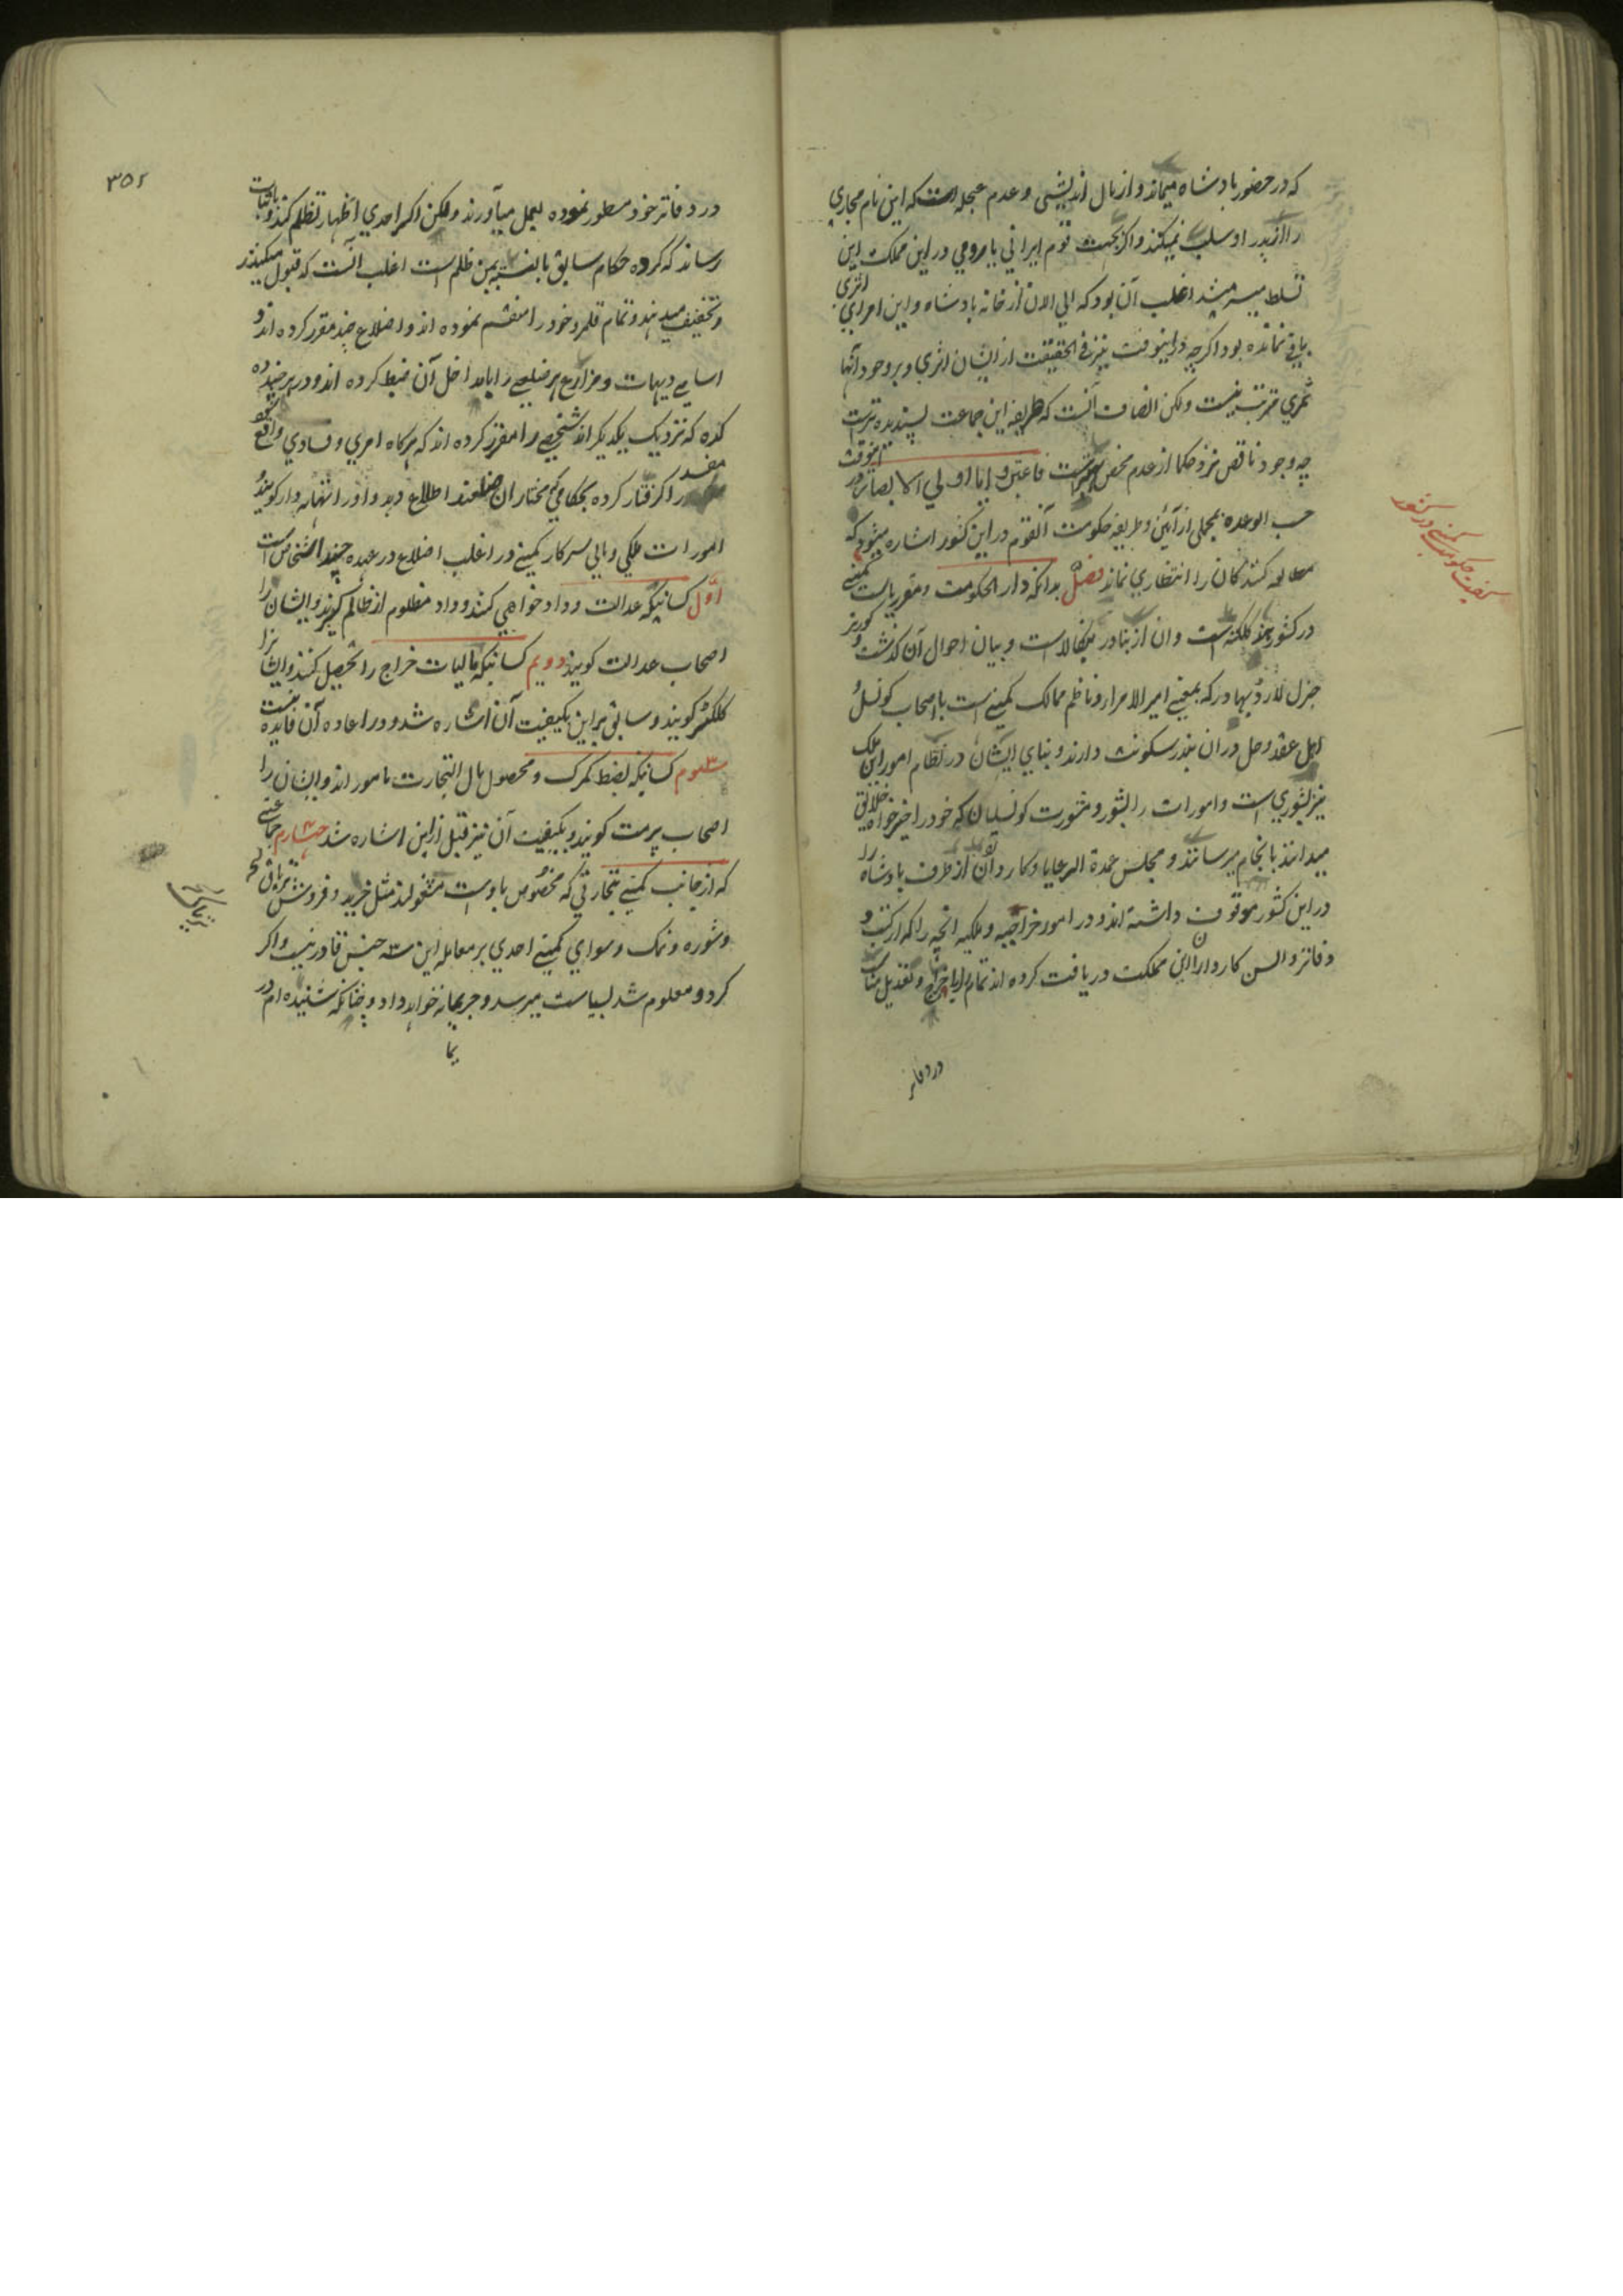 که در حضور پادشاه میماند و از مال اندیشی و عدم عجله است که این نام مجازی
را از پدر او سلب نمیکنند و اگر بجهت قوم ایرانی یا رومی در این مملکت این
تسلط میسر میشد اغلب آن بود که الی الان از خانه پادشاه و این امرا اثری
باقی نمانده بود اگر چه در اینوقت نیز فی الحقیقت از ایشان اثری و بر وجود آنها
ثمری مترتب نیست ولکن انصاف آنست که طریقه این جماعت پسندیده تر است
چه وجود ناقص نزد حکما از عدم محض بهتر است فاعتبروا یا اولی الابصار در اینوقت
حسب الوعده مجملی از آئین و طریقه حکومت آنقوم در این کشور اشاره میشود که
مطالعه کنندکان را انتظاری نماند فصل بدانکه دار الحکومت و مقر ریاست کمپنی
در کشور هند کلکته است و ان از بنادر بنکالا است و بیان احوال آن کذشت و کورنر
جنرل لارد بهادر که بمعنی امیر الامرا و ناظم ممالک کمپنی است با اصحاب کونسل و
اهل عقد و حل در ان بندر سکونت دارند و بنای ایشان در نظام امور این ملک
نیز بشوری است و امورات را بشور و مشورت کونسلیان که خود را خیرخواه خلایق
میدانند بانجام میرسانند و مجلس عمدة الرعایا و کاردان از طرف پادشاه را
در این کشور موقوف داشته اند و در امور خراجیه و ملکیه انچه را که از کتب و
دفاتر و السن کارداران این مملکت دریافت کرده اند تمام را با خراج و تعدیل مناسب
در دفاتر
کیفیت حکومت کمپنی در کشور
۳۵۲
در دفاتر خود مسطور نموده بعمل میآورند ولکن اکر احدی اظهار تظلم کند و باثبات
رساند که کرده حکام سابق بالنسبه بمن ظلم است اغلب آنست که قبول میکنند
و تخفیف میدهند و تمام قلمرو خود را منقسم نموده اند و اضلاع چند مقرر کرده اند و
اسامی دیهات و مزارع هر ضلعی را با مداخل آن ضبط کرده اند و در هر چند ده
کده که نزدیک یکدیکر اند شخصی را مقرر کرده اند که هرکاه امری و فسادی واقع شود
مفسد را کرفتار کرده بحکامی که مختاران ضلعند اطلاع دهد و او را تهانه دار کویند و
امورات ملکی و مالی سرکار کمپنی در اغلب اضلاع در عهده چند اشخاص است
اول کسانیکه عدالت و دادخواهی کنند و داد مظلوم از ظالم کیرند و ایشان را
اصحاب عدالت کویند دویم کسانیکه مالیات خراج را تحصیل کنند و ایشانرا
کلکتر کویند و سابق بر این بکیفیت آن اشاره شد و در اعاده آن فایده نیست
سیوم کسانیکه بضبط کمرک و محصول مال التجارت مامور اند و ایشان را
اصحاب پرمت کویند و بکیفیت آن نیز قبل از این اشاره شد چهارم جماعتی
که از جانب کمپنی بتجارتی که مخصوص باوست مشغولند مثل خرید و فروش تریاق
و شوره و نمک و سوای کمپنی احدی بر معامله این سه جنس قادر نیست و اکر
کرد و معلوم شد بسیاست میرسد و جریمانه خواهد داد و چنانکه شنیده ام در